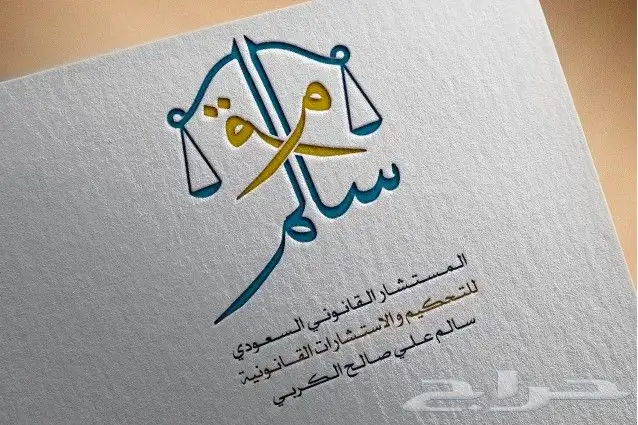 سالم
المستشار القانوني السعودي
للتحكيم والاستشارات القانونية
سالم علي صالح الكربي
حراج